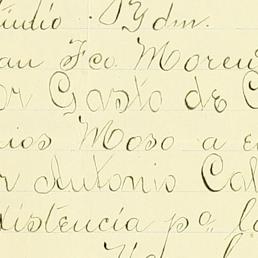 Ydm.
an Fco Moren
or Gasto de C
ios Moso a e
r Antonio Cal
distencia pa. l